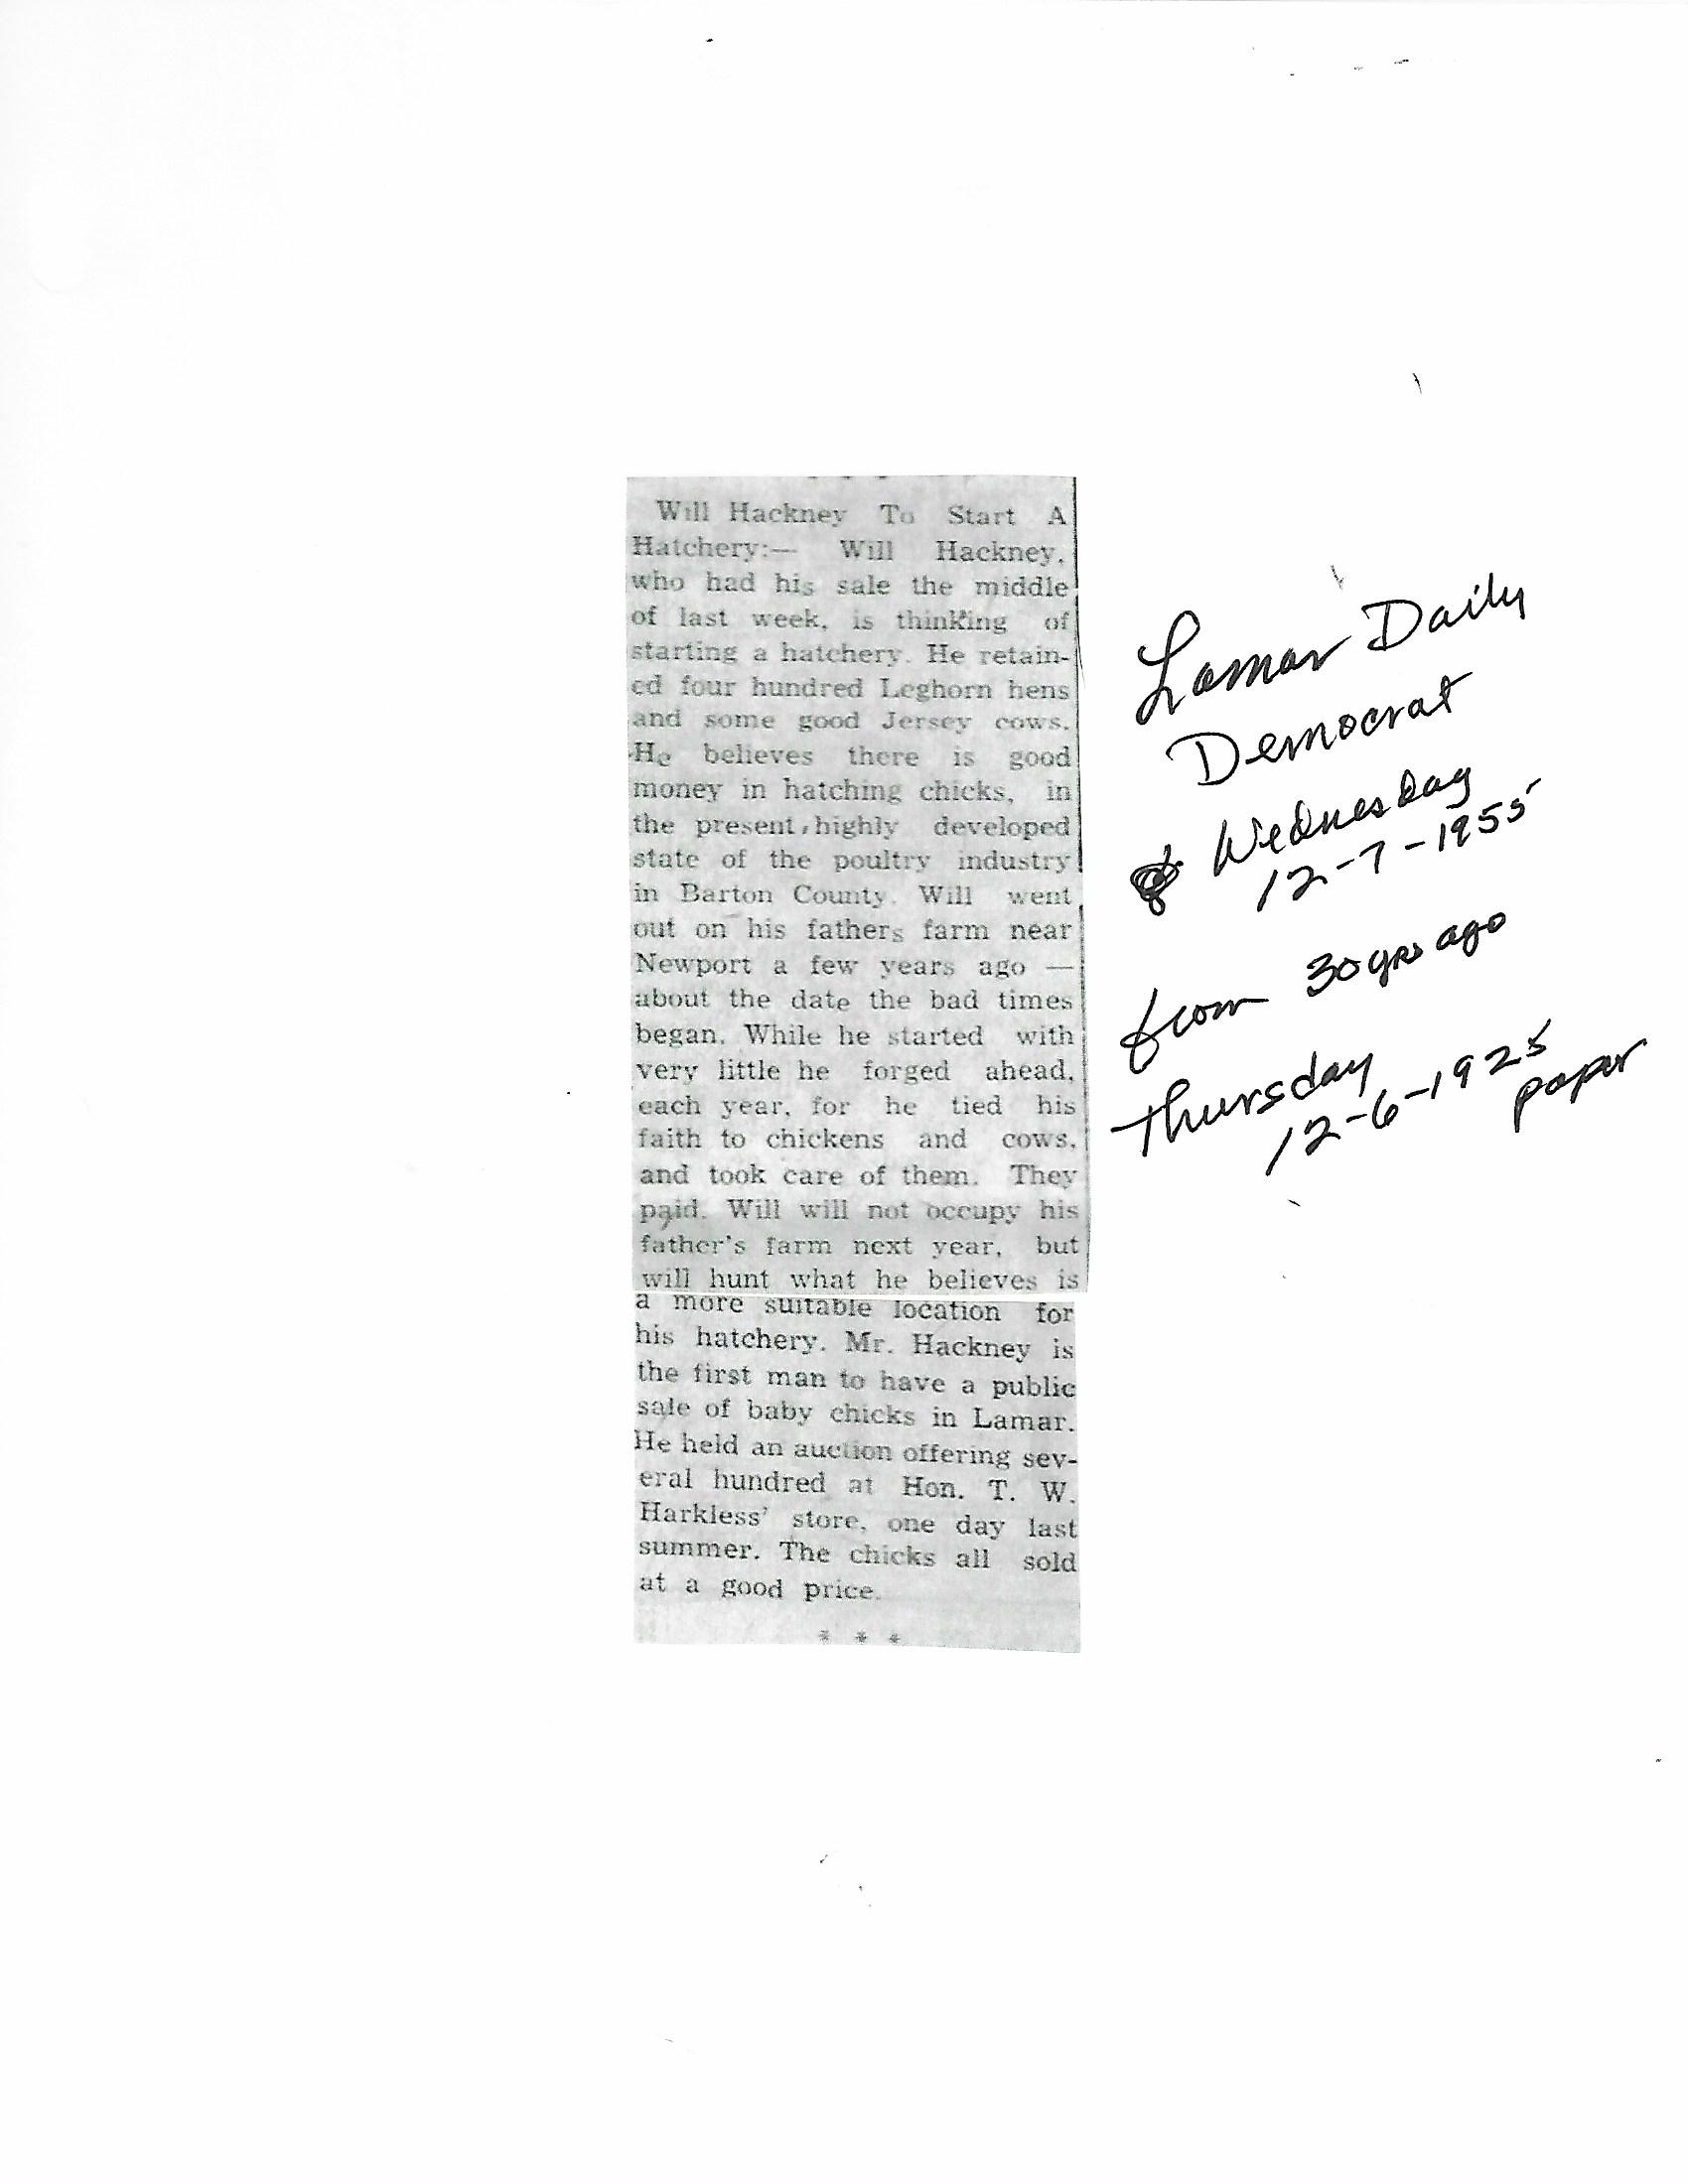 Will Hackney To Start A
Hatchery:— Will Hackney,
who had his sale the middle
of last week, is thinking of
starting a hatchery. He retain-
ed four hundred Leghorn hens
and some good Jersey cows.
He believes there is good
money in hatching chicks, in
the present, highly developed
state of the poultry industry
in Barton County. Will went
out on his fathers farm near
Newport a few years ago —
about the date the bad times
began. While he started with
very little he forged ahead,
each year, for he tied his
faith to chickens and cows,
and took care of them. They
paid. Will will not occupy his
father's farm next year, but
will hunt what he believes is
a more suitable location for
his hatchery. Mr. Hackney is
the first man to have a public
sale of baby chicks in Lamar.
He held an auction offering sev-
eral hundred at Hon. T. W.
Harkless' store, one day last
summer. The chicks all sold
at a good price.
* * *
Lamar Daily
Democrat
Wednesday
12-7-1955
from 30 yrs ago
Thursday
12-6-1925
paper